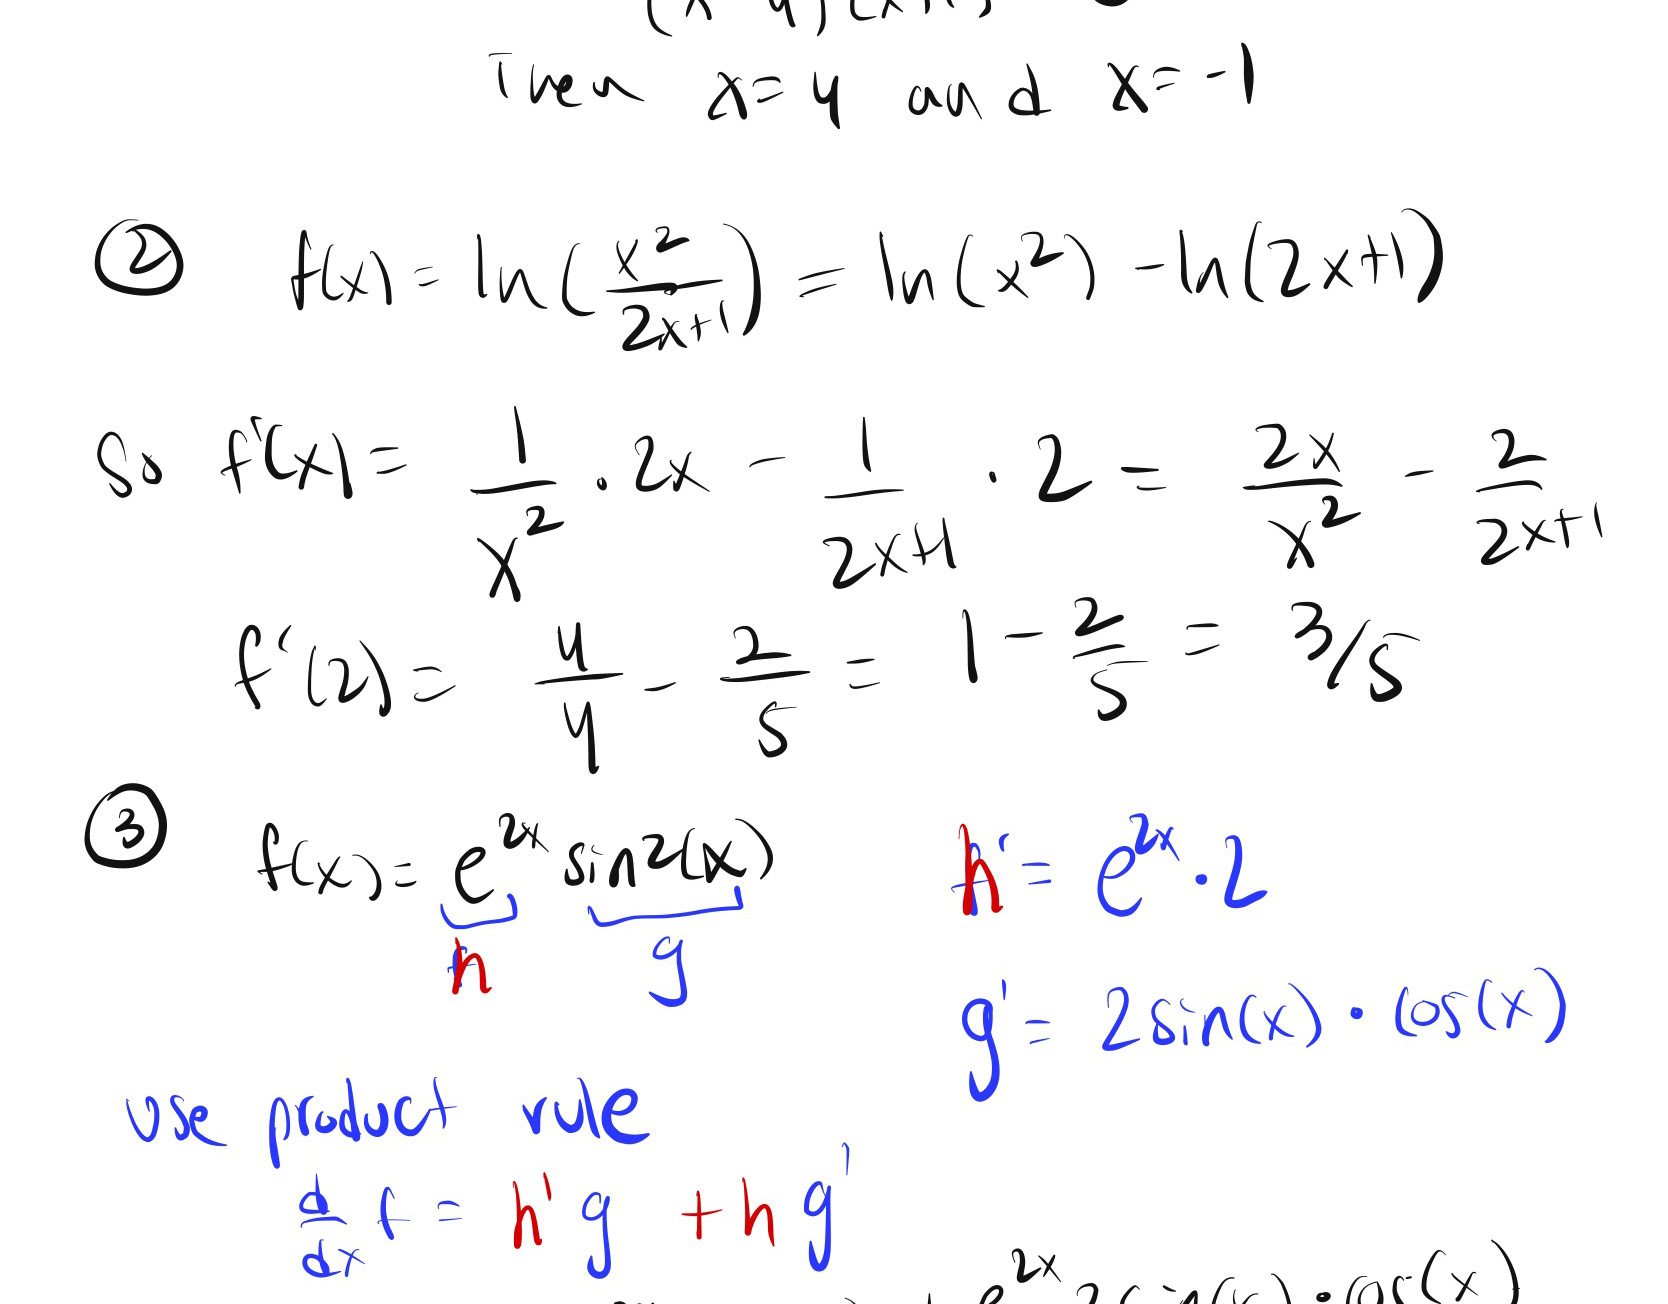 (x-4)(x+1)
Then x=4 and x=-1
② f(x) = ln(x²/(2x+1)) = ln(x²) - ln(2x+1)
So f'(x) = 1/x² · 2x - 1/(2x+1) · 2 = 2x/x² - 2/(2x+1)
f'(2) = 4/4 - 2/5 = 1 - 2/5 = 3/5
③ f(x) = e^{2x} sin2(x)
h g
h' = e^{2x} · 2
g' = 2sin(x) · cos(x)
use product rule
d/dx f = h'g + hg'
e^{2x} 2sin(x) · cos(x)